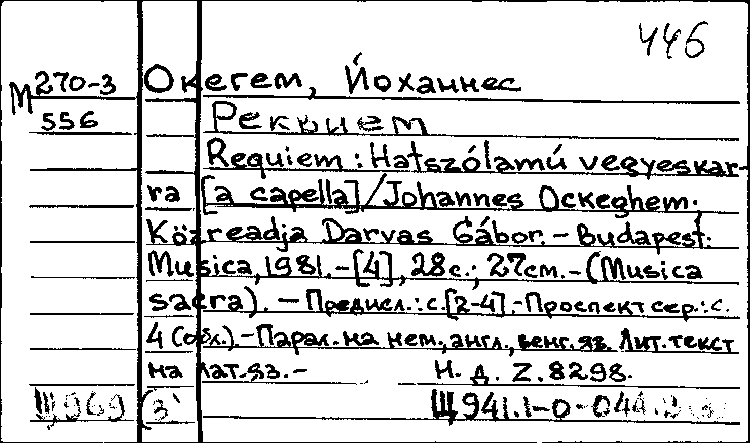 446
М 270-3 Окегем, Йоханнес
556 Реквием
Requiem : Hatszólamú vegyeskar-
ra [a capella] / Johannes Ockeghem;
Közreadja Darvas Gábor. - Budapest:
Musica, 1981. - [4], 28 с.; 27 см. - (Musica
sacra). - Предисл.: с. [2-4]. - Проспект сер.: с.
4 (обл.). - Парал. на нем., англ., венг. яз. Лит. текст
на лат. яз. - Н. д. Z. 8298.
Щ969 (3 Щ941.1-0-044.